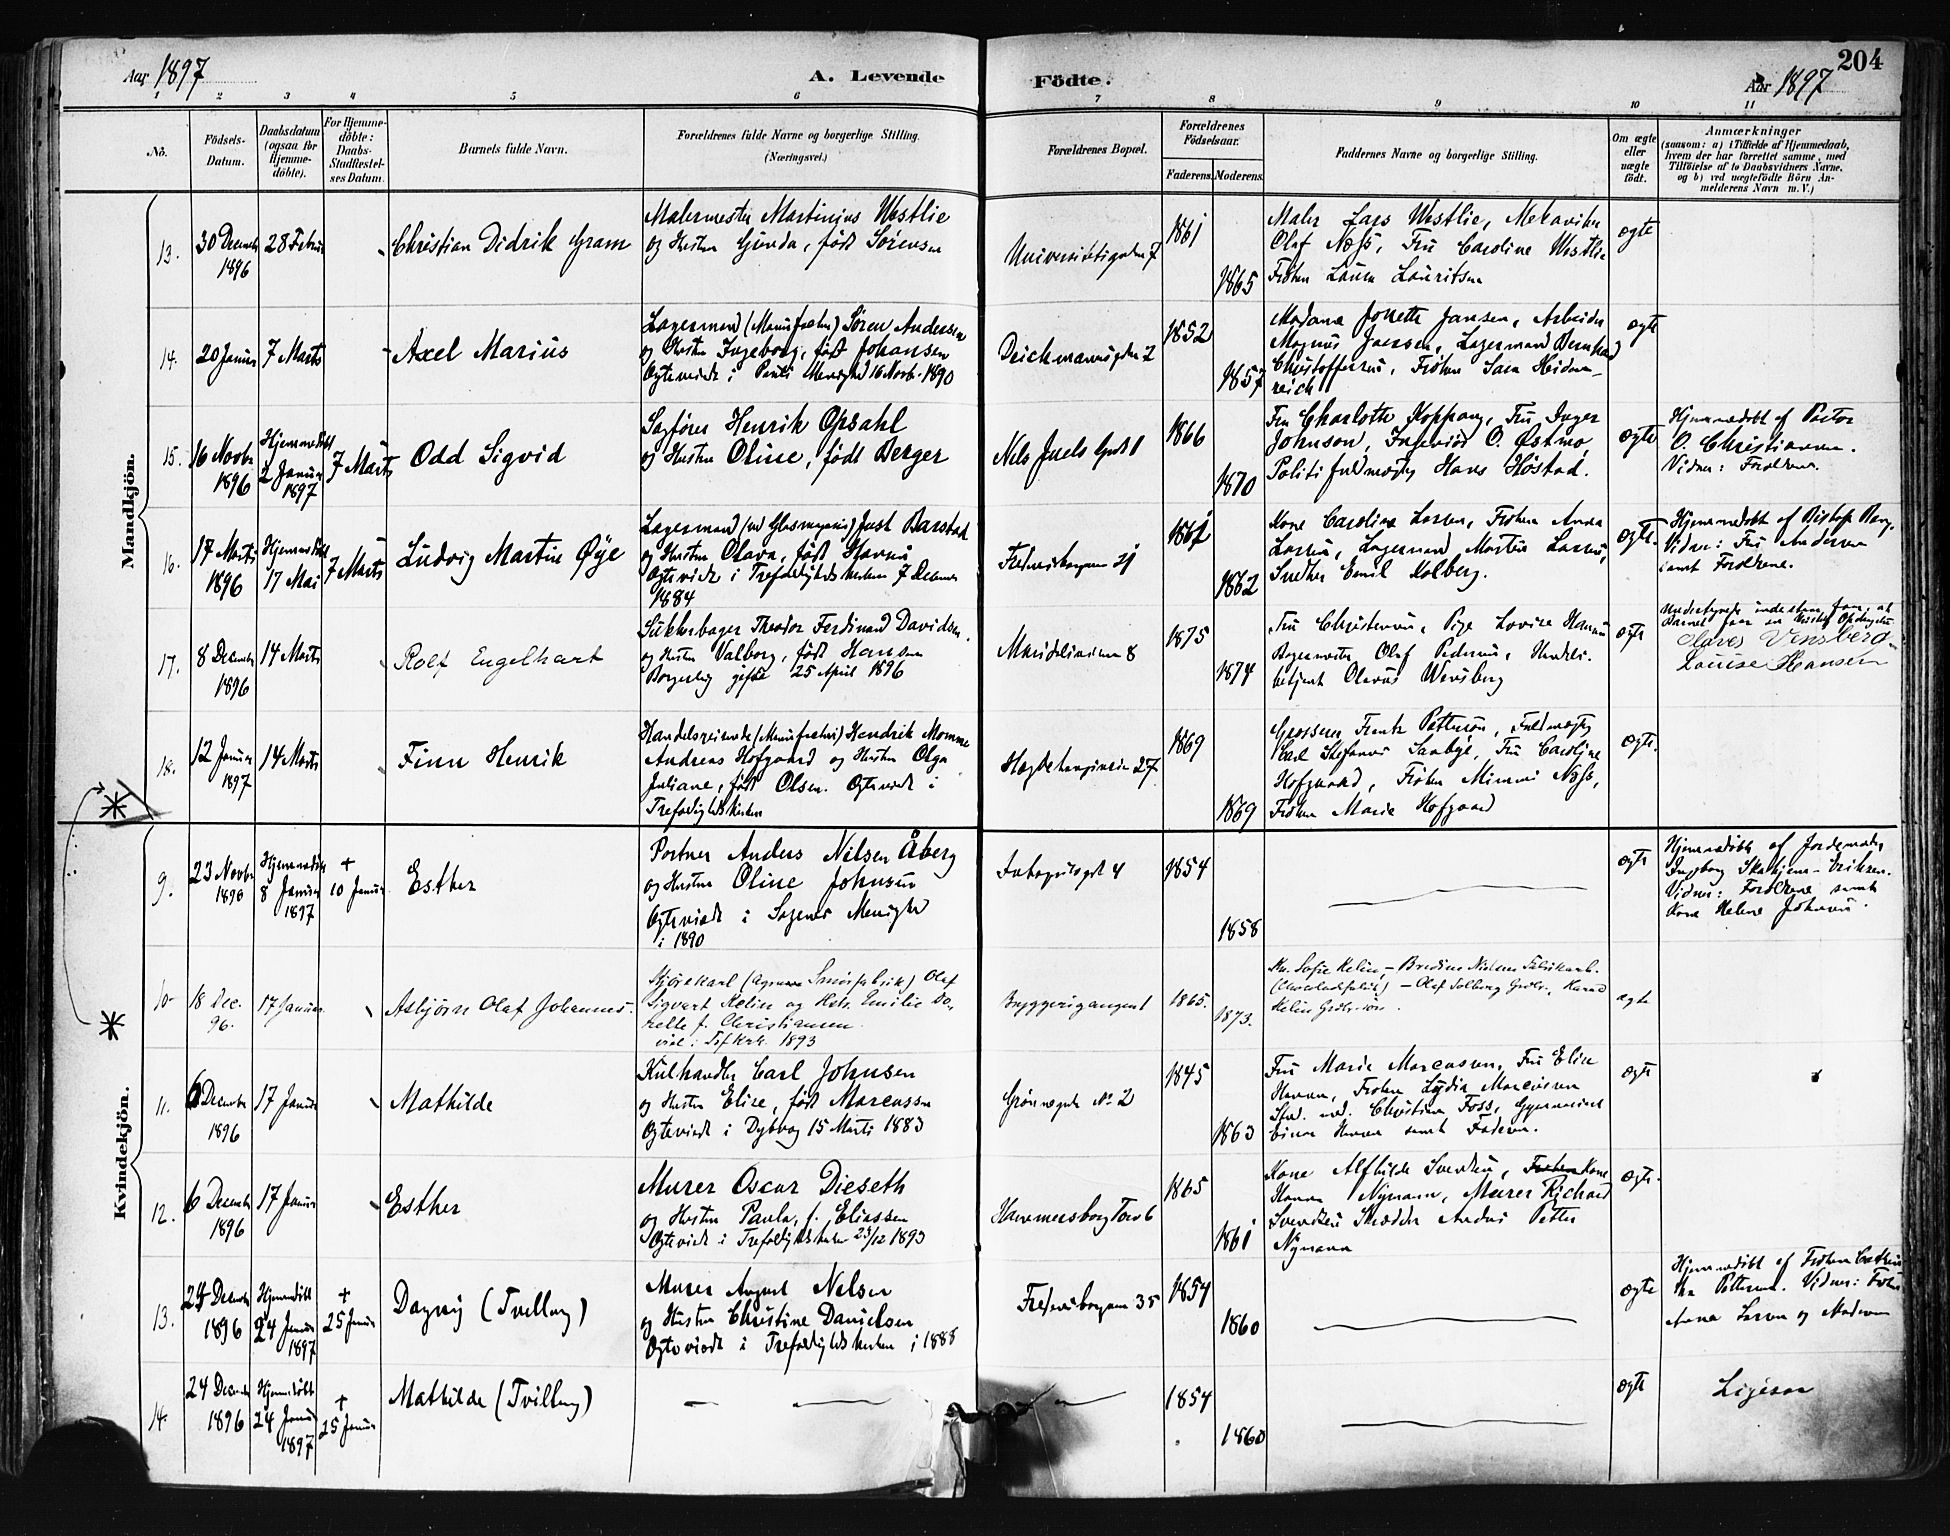 204
Aar 1897
A. Levende
Födte.
Aar 1897
1 2 3 4 5 6 7 8 9 10 11
No.
Födsels-
Datum.
Daabsdatum
(ogsaa for
Hjemme-
döbte).
For Hjemme-
döbte:
Daabs-
Stadfæstel-
ses Datum.
Barnets fulde Navn.
Forældrenes fulde Navne og borgerlige Stilling.
(Næringsvei.)
Forældrenes Bopæl.
Forældrenes
Födselsaar.
Faderens.
Moderens.
Faddernes Navne og borgerlige Stilling.
Om ægte
eller
uægte
födt.
Anmærkninger
(saasom: a) i Tilfælde af Hjemmedaab,
hvem der har forrettet samme, med
Tilföielse af to Daabsvidners Navne,
og b) ved uægtefödte Börn An-
melderens Navn m. V.)
Mandkjön.
13.
30 Decemb
1896
28 Februar
Christian Didrik Gram
Malermester Martinius Westlie
og Hustru Gunda, født Sörensen
Universitetsgaden 7
1861
1865
Maler Lars Westlie, Mekaniker
Olaf Næss, Fru Caroline Westlie
Fröken Laura Lauritsen
ægte
14.
20 Januar
7 Marts
Axel Marius
Lagermand (Manufactur) Sören Andersen
og Hustru Ingeborg, født Johansen
Ægteviede i Pauli Menighed 16 Novb. 1890
Deichmannsgden 7
1852
1857
Madame Jonette Jansen, Arbeider
Magnus Jansen, Lagermand Bernhard
Christoffersen, Fröken Sara Heiden-
reich
ægte
15.
16 Novbr
1896
Hjemmedöbt
2 Januar
1897
7 Marts
Odd Sigvid
Sagförer Henrik Opsahl
og Hustru Oline, født Berger
Nels Juels Gade 1
1866
1870
Fru Charlotte Koppang, Fru Inger
Johnson, Ingeniör O. Östmo,
Politifuldmægtig Hans Höstad.
ægte
Hjemmedöbt af Pastor
O. Christiansen.
Vidner: Forældrene.
16.
17 Marts
1896
Hjemmedöbt
17 Mai
7 Marts
Ludvig Martin Øye
Lagermand (ved Glasmagasin) Just Barstad
og Hustru Olava, født Havnen
Ægteviede i Trefoldigheds kirken 7 December
1884
Fredensborgveien 21
1861
1862
Kone Caroline Larsen, Fröken Anna
Larsen, Lagermand Martin Larsen,
Snedker Emil Kolberg.
ægte.
Hjemmedöbt af Biskop Bang.
Vidner: Fru Andersen
samt Forældrene.
17.
8 December
1896
14 Marts
Rolf Engelhart
Sukkerbager Theodor Ferdinand Davidsen
og Hustru Valborg, født Hansen
Borgerlig gifte 25 April 1896
Maridalsveien 8
1875
1874
Fru Christensen, Pige Lovise Hansen
Bagermester Olaf Pedersen, Handels-
betjent Olavus Wensberg
ægte
Undertegnede indestaar for, at
Barnet faar en kristelig Opdragelse
Olaves Vensberg
Louise Hansen
18.
12 Januar
1897
14 Marts
Finn Henrik
Handelsreisende (Manufactur) Hendrik Momme
Andreas Hofgaard og Hustru Olga
Juliane, født Olsen. Ægteviede i
Trefoldighedskirken
Hægdehaugsveien 27
1869
1869
Grosserer Frantz Pettersen, Fuldmægtig
Karl Stefanus Saxbye, Fru Caroline
Hofgaard, Fröken Mimmi Næss,
Fröken Marie Hofgaard
ægte.
Kvindekjön.
9.
23 Novbr
1890
Hjemmedöbt
8 Januar
1897
+
10 Januar
Esther
Portner Anders Nilsen Åberg
og Hustru Oline Johnsen
Ægteviede i Sagenes Menighed
i 1890
1854
1858
ægte
Hjemmedöbt af Jordemoder
Ingeborg Skakjem-Eriksen.
Vidner: Forældrene samt
Kone Helene Johnsen.
10
18 Dec.
96.
17 Januar
Asbjörn Olaf Johannes.
Kjörekarl (Agnes Smörfabrik) Olaf
Sigvart Kelin og Hstr. Emilie Do-
rette f. Christiansen.
viet i Trf. Krk. 1893
Bryggerigangen 1
1865.
1873.
Kn. Sofie Kelin, – Bredine Nielsen Fabrikarb.
(Chocoladefabrik) – Olaf Solberg
ægte
11.
6 December
1896
17 Januar
Mathilde
Kulhandler Carl Johnsen
og Hustru Elise, født Marcussen
Ægteviede i Dybvaag 15 Marts 1883
Grönnegade No 2
1845
1863
Fru Marie Marcussen, Fru Elise
Hansen, Fröken Lydia Marcussen
Stud. med. Christian Foss, Gymnasiast
Einar Hansen samt Faderen.
ægte
12.
6 December
1896
17 Januar
Esther
Murer Oscar Dieseth
og Hustru Paula, f. Eliassen
Ægteviede i Trefoldighedskirken 23/12 1893
Hammersborg Torv 6
1865
1861
Kone Alfhilde Svendsen, Kone
Hanna Nymann, Murer Richard
Svendsen Skrædder Anders Petter
Nymann
ægte.
13.
24 Decemb
1896
Hjemmedöbt
24 Januar
1897
+
25 Januar
Dagny (Tvilling)
Murer August Nilsen
og Hustru Christine Danielsen
Ægteviede i Trefoldighedskirken i 1888
Fredensborgveien 35
1854
1860
ægte
Hjemmedöbt af Fröken Cathrin-
ka Pettersen. Vidner: Fröken
Anna Larsen og Moderen
14.
24 Decemb
1896
Hjemmedöbt
24 Januar
1897
+
25 Januar
Mathilde (Tvilling)
1854
1860
ægte
Ligesaa